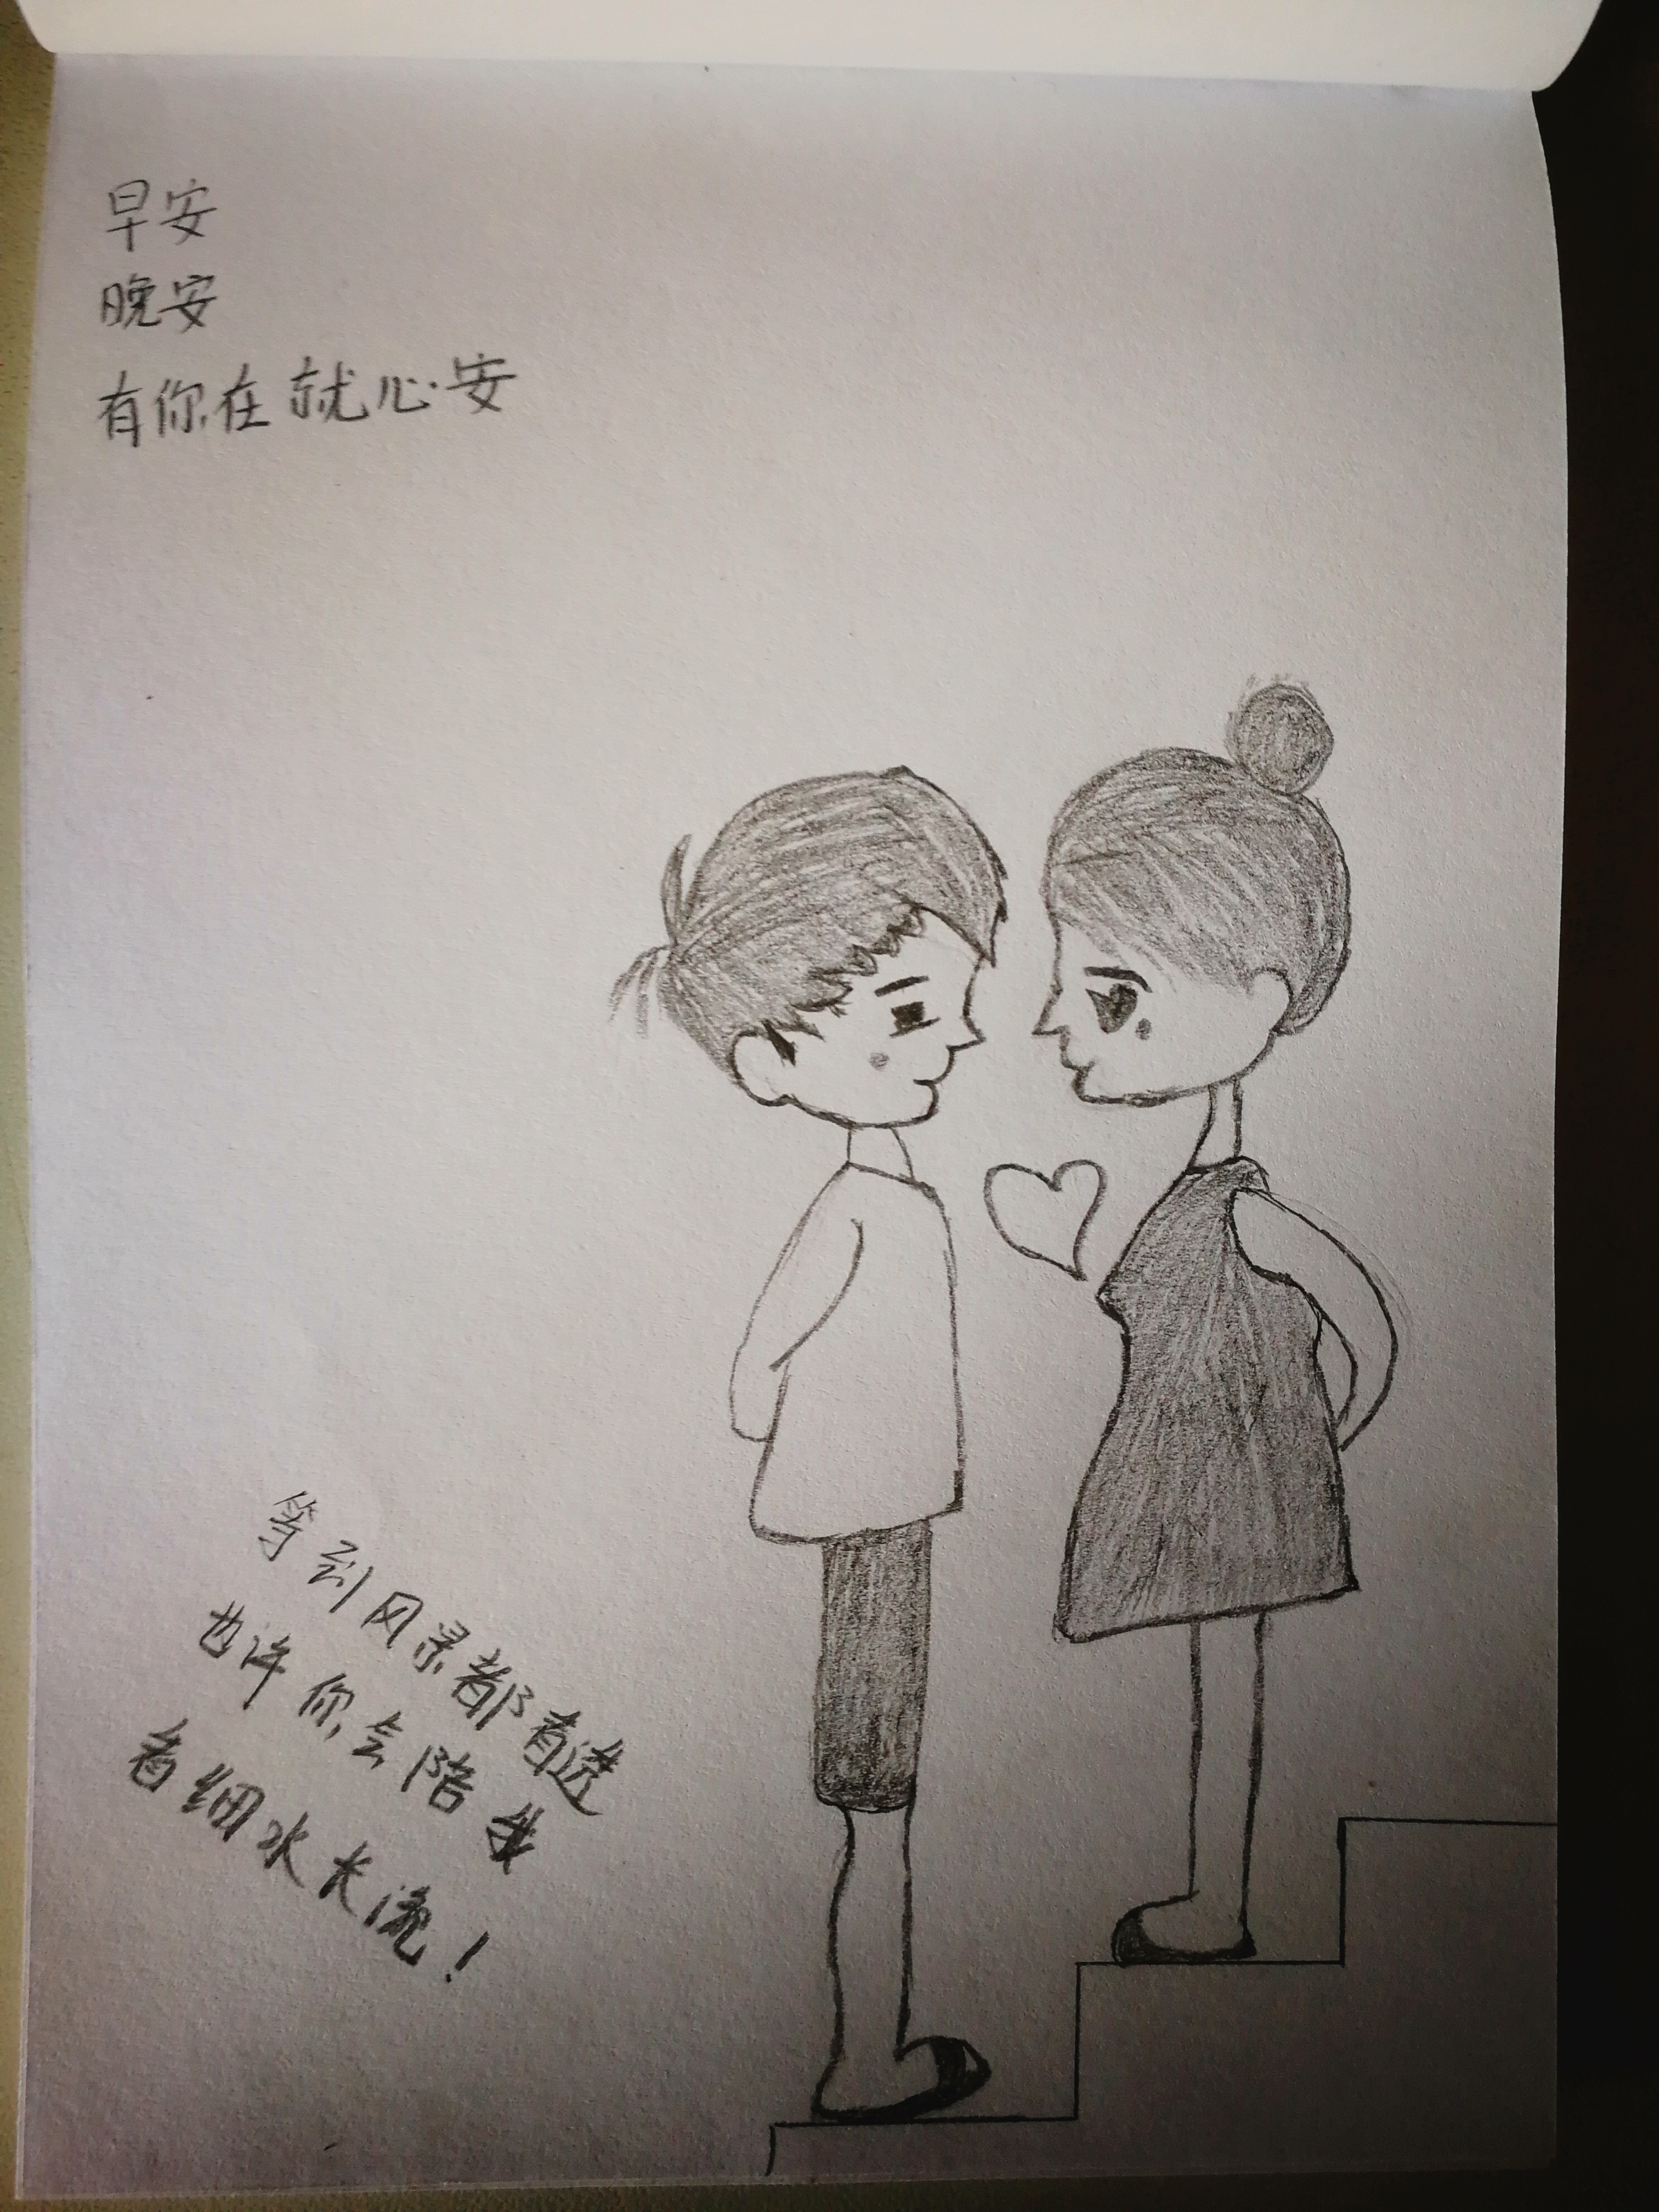 早安
晚安
有你在就心安
等到风景都看透
也许你会陪我
看细水长流！